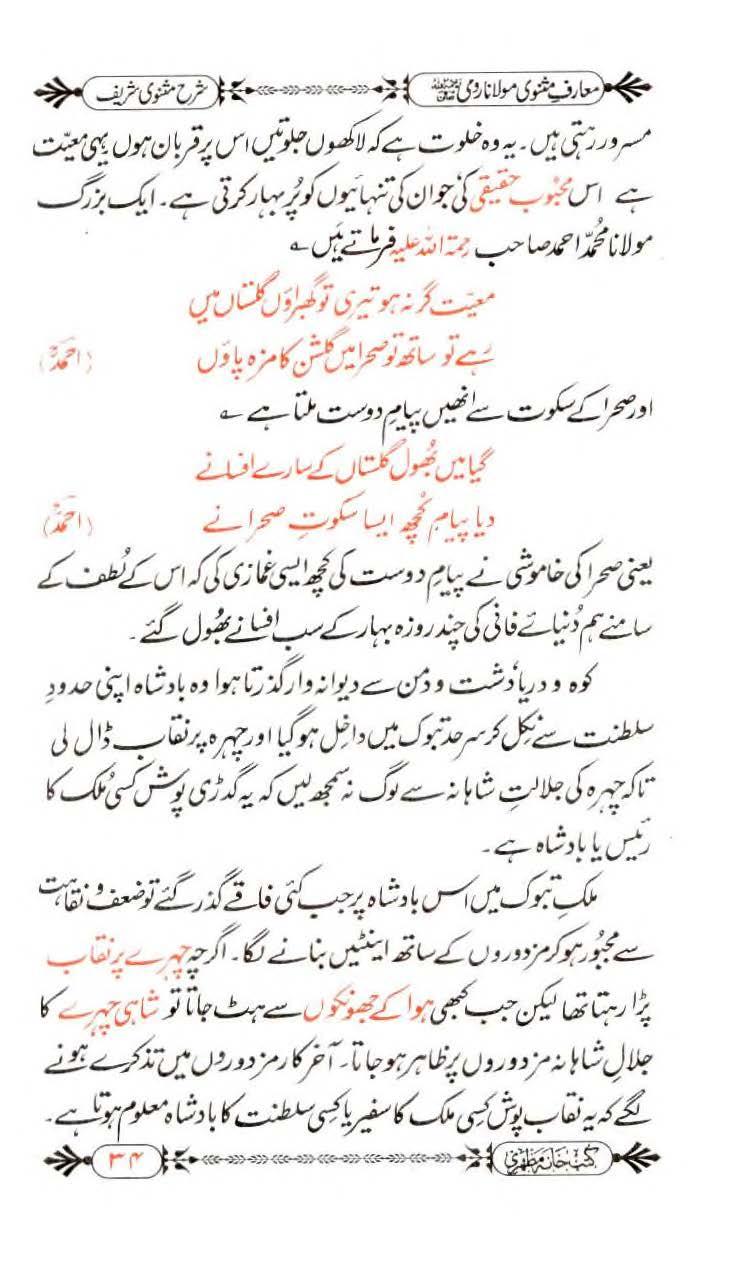 معارفِ مثنوی مولانا رومی رحمۃ اللہ تعالیٰ علیہ
شرح مثنوی شریف
مسرور رہتی ہیں۔ یہ وہ خلوت ہے کہ لاکھوں جلوتیں اس پر قربان ہوں یہی معیّت
ہے اس محبُوبِ حقیقی کی جو ان کی تنہائیوں کو پُر بہار کرتی ہے۔ ایک بزرگ
مولانا محمّد احمد صاحب رحمۃ اللہ علیہ فرماتے ہیں ؎
معیّت گر نہ ہو تیری تو گھبراؤں گلستاں میں
رہے تو ساتھ تو صحرا میں گلشن کا مزہ پاؤں (احمدؔ)
اور صحرا کے سکوت سے انھیں پیامِ دوست ملتا ہے ؎
گیا میں بھُول گلستاں کے سارے افسانے
دیا پیام کُچھ ایسا سکوتِ صحرا نے (احمدؔ)
یعنی صحرا کی خاموشی نے پیامِ دوست کی کچھ ایسی غمازی کی کہ اس کے لُطف کے
سامنے ہم دُنیائے فانی کی چند روزہ بہار کے سب افسانے بھُول گئے۔
کوہ و دریا دشت و دمن سے دیوانہ وار گذرتا ہوا وہ بادشاہ اپنی حدودِ
سلطنت سے نِکل کر سرحد تبوک میں داخِل ہو گیا اور چہرہ پر نقاب ڈال لی
تاکہ چہرہ کی جلالتِ شاہانہ سے لوگ نہ سمجھ لیں کہ یہ گدڑی پوش کسی مُلک کا
رئیس یا بادشاہ ہے۔
ملکِ تبوک میں اس بادشاہ پر جب کئی فاقے گذر گئے تو ضعف و نقاہت
سے مجبُور ہو کر مزدوروں کے ساتھ اینٹیں بنانے لگا۔ اگرچہ چہرے پر نقاب
پڑا رہتا تھا لیکن جب کبھی ہوا کے جھونکوں سے ہٹ جاتا تو شاہی چہرے کا
جلالِ شاہانہ مزدوروں پر ظاہر ہو جاتا۔ آخر کار مزدوروں میں تذکرے ہونے
لگے کہ یہ نقاب پوش کسی ملک کا سفیر یا کسی سلطنت کا بادشاہ معلوم ہوتا ہے۔
کتب خانہ مظہری
۳۴